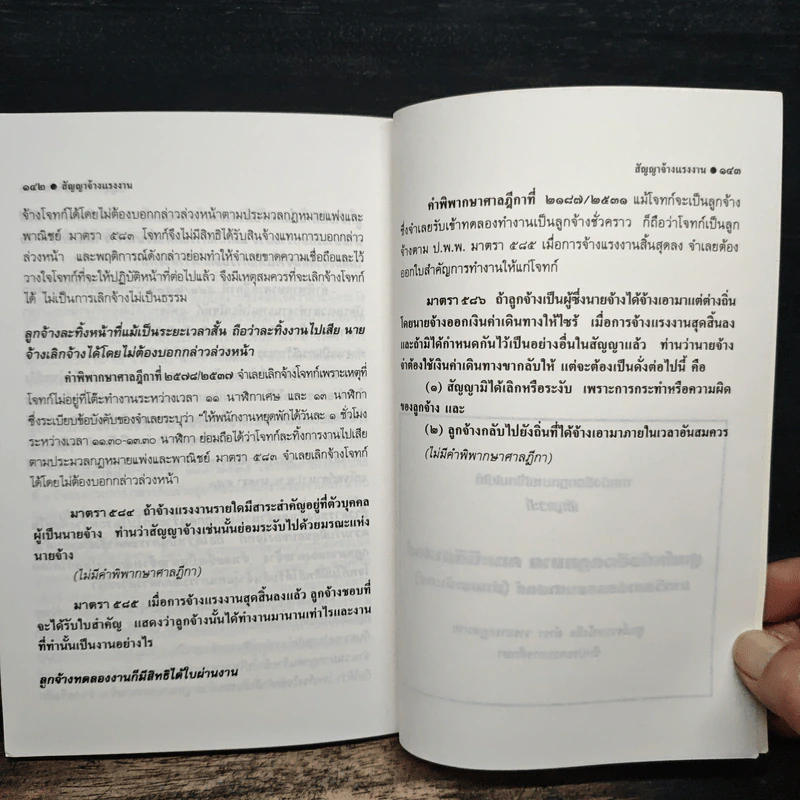 ๑๔๒ ● สัญญาจ้างแรงงาน
จ้างโจทก์ได้โดยไม่ต้องบอกกล่าวล่วงหน้าตามประมวลกฎหมายแพ่งและ
พาณิชย์ มาตรา ๕๘๓ โจทก์จึงไม่มีสิทธิได้รับสินจ้างแทนการบอกกล่าว
ล่วงหน้า และพฤติการณ์ดังกล่าวย่อมทำให้จำเลยขาดความเชื่อถือและไว้
วางใจโจทก์ที่จะให้ปฏิบัติหน้าที่ต่อไปแล้ว จึงมีเหตุสมควรที่จะเลิกจ้างโจทก์
ได้ ไม่เป็นการเลิกจ้างไม่เป็นธรรม
ลูกจ้างละทิ้งหน้าที่แม้เป็นระยะเวลาสั้น ถือว่าละทิ้งงานไปเสีย นาย
จ้างเลิกจ้างได้โดยไม่ต้องบอกกล่าวล่วงหน้า
คำพิพากษาศาลฎีกาที่ ๒๕๗๘/๒๕๓๗ จำเลยเลิกจ้างโจทก์เพราะเหตุที่
โจทก์ไม่อยู่ที่โต๊ะทำงานระหว่างเวลา ๑๑ นาฬิกาเศษ และ ๑๓ นาฬิกา
ซึ่งระเบียบข้อบังคับของจำเลยระบุว่า "ให้พนักงานหยุดพักได้วันละ ๑ ชั่วโมง
ระหว่างเวลา ๑๑.๓๐-๑๓.๓๐ นาฬิกา ย่อมถือได้ว่าโจทก์ละทิ้งการงานไปเสีย
ตามประมวลกฎหมายแพ่งและพาณิชย์ มาตรา ๕๘๓ จำเลยเลิกจ้างโจทก์
ได้โดยไม่ต้องบอกกล่าวล่วงหน้า
มาตรา ๕๘๔ ถ้าจ้างแรงงานรายใดมีสาระสำคัญอยู่ที่ตัวบุคคล
ผู้เป็นนายจ้าง ท่านว่าสัญญาจ้างเช่นนั้นย่อมระงับไปด้วยมรณะแห่ง
นายจ้าง
(ไม่มีคำพิพากษาศาลฎีกา)
มาตรา ๕๘๕ เมื่อการจ้างแรงงานสุดสิ้นลงแล้ว ลูกจ้างชอบที่
จะได้รับใบสำคัญ แสดงว่าลูกจ้างนั้นได้ทำงานมานานเท่าไรและงาน
ที่ทำนั้นเป็นงานอย่างไร
ลูกจ้างทดลองงานก็มีสิทธิได้ใบผ่านงาน
สัญญาจ้างแรงงาน ● ๑๔๓
คำพิพากษาศาลฎีกาที่ ๒๑๘๗/๒๕๓๑ แม้โจทก์จะเป็นลูกจ้าง
ซึ่งจำเลยรับเข้าทดลองทำงานเป็นลูกจ้างชั่วคราว ก็ถือว่าโจทก์เป็นลูก
จ้างตาม ป.พ.พ. มาตรา ๕๘๕ เมื่อการจ้างแรงงานสิ้นสุดลง จำเลยต้อง
ออกใบสำคัญการทำงานให้แก่โจทก์
มาตรา ๕๘๖ ถ้าลูกจ้างเป็นผู้ซึ่งนายจ้างได้จ้างเอามาแต่ต่างถิ่น
โดยนายจ้างออกเงินค่าเดินทางให้ไซร้ เมื่อการจ้างแรงงานสุดสิ้นลง
และถ้ามิได้กำหนดกันไว้เป็นอย่างอื่นในสัญญาแล้ว ท่านว่านายจ้าง
จำต้องใช้เงินค่าเดินทางขากลับให้ แต่จะต้องเป็นดั่งต่อไปนี้ คือ
(๑) สัญญามิได้เลิกหรือระงับ เพราะการกระทำหรือความผิด
ของลูกจ้าง และ
(๒) ลูกจ้างกลับไปยังถิ่นที่ได้จ้างเอามาภายในเวลาอันสมควร
(ไม่มีคำพิพากษาศาลฎีกา)